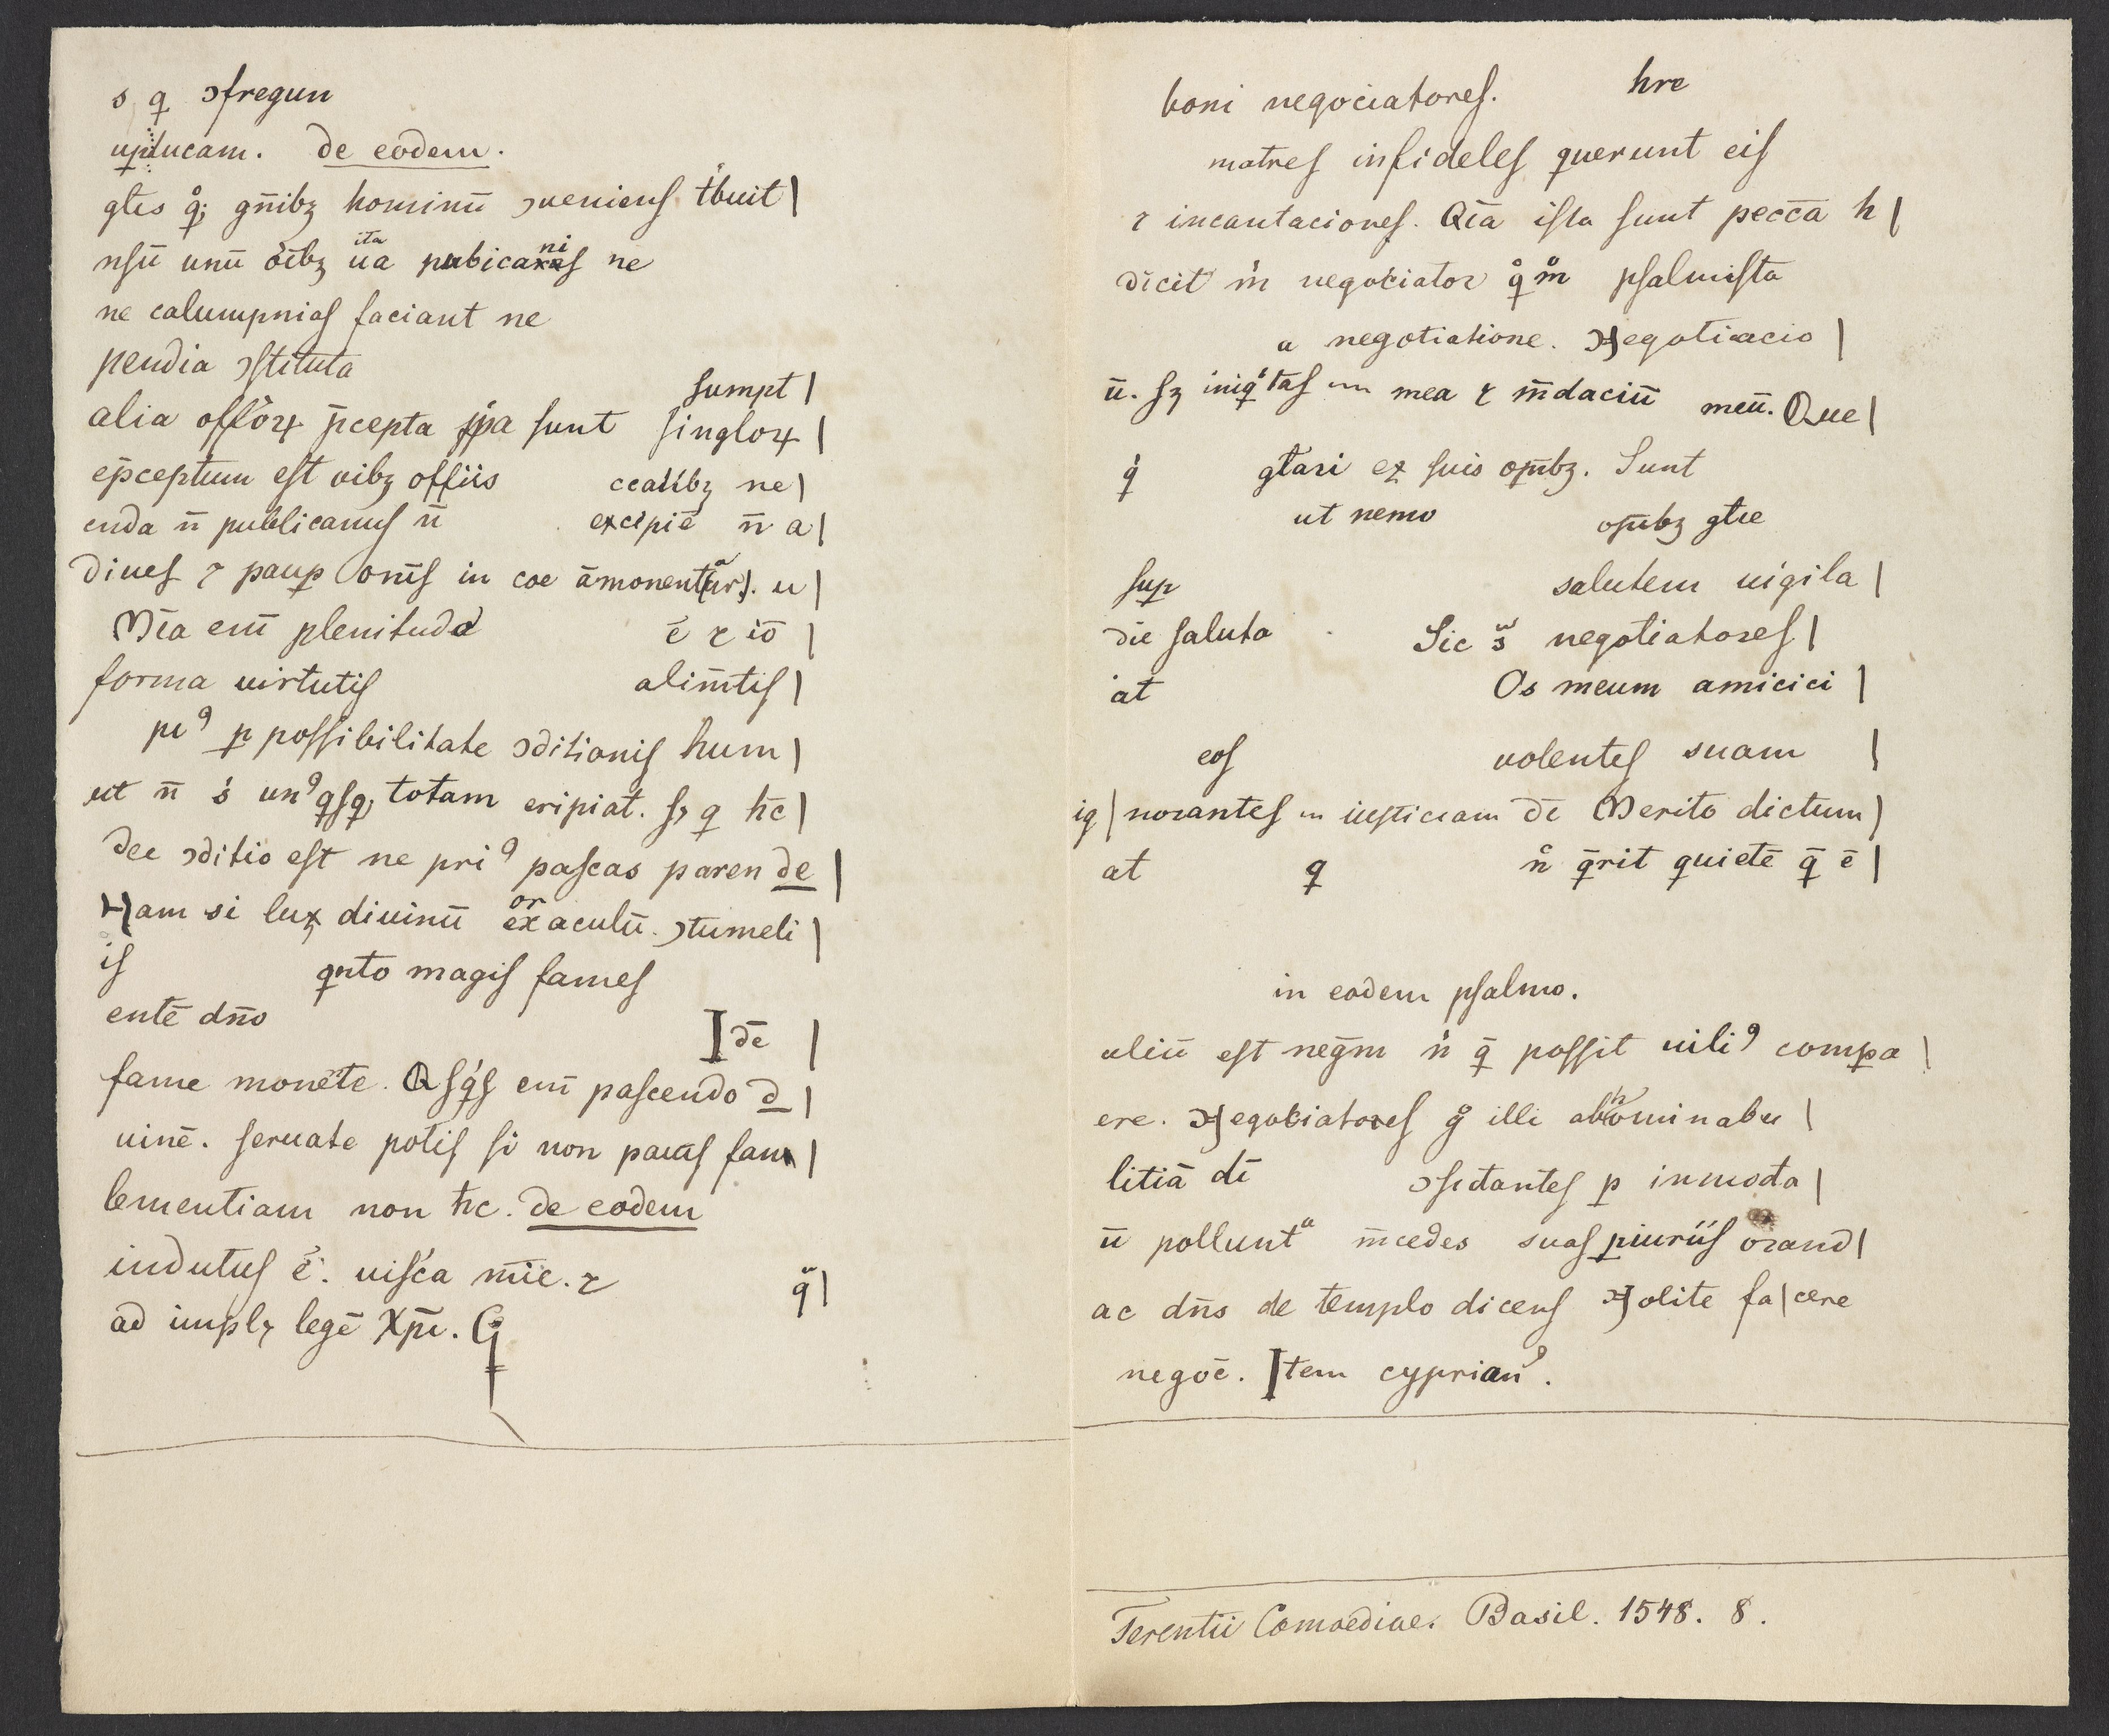 s q ↄfregun
de eodem.
gtēs q̊; gn̄ibꝫ hominū ↄueniens tͥbuit |
nsū unū oībꝫ ita ne
ne calumpnias faciant ne
pendia ↄstituta
sumpt |
alia offōꝝ p̄cepta sunt singloꝝ |
ep̄ceptum est oibꝫ offiis ne |
enda n̄ publicanus n̄ excipiē n̄ a |
Diues ⁊ paup̱ om̄s in coē āmonent(ur). u |
Mīa em̄ plenitudo ē ⁊ iō |
forma uirtutis alim̄tis |
piꝰ p̱ possibilitate ↄditionis hum |
ut n̄ sͥ unꝰqͥsqꝫ totam eripiat. sꝫ q h̄c |
dei ↄditio est ne priꝰ pascas paren de |
Nam si lux divinū or aculū. ↄtumeli |
is qnto magis fames
entē dn̄o
I dē |
fame monēte. Qsqͥs em̄ pascendo d |
uinē. seruate potͥs si non fam |
lementiam non h̄c. de eodem
indutus ē. uiscͥa mīe. ⁊ q̈ |
ad impleꝫ legē xp̄i. G
boni negociatores. hre
matres infideles querunt eis
⁊ incantaciones. Qīa ista sunt peccā h |
dicit mͥ negotiator q̊m̊ psalmista
a negotiatione. Negotiacio |
ū. sꝫ iniqͥtas mea ⁊ m̄daciū meū. Que |
qͥ gl̄ari ex suis op̄ibꝫ. Sunt
ut nemo op̄ibꝫ gl̄ie
sup̱ salutem uigila |
die saluta Sic s̈ negotiatores |
at Os meum amicici |
eos uolentes suam |
ig | norantes iusticiam dī Merito dictum |
at q n̊ q̄rit quietē q̄ ē |
in eodem psalmo.
aliū est neg̅m nͥ q̄ possit uiliꝰ comp̱a |
ere. Negotiatores g̊ illi abominabu |
litiā dī ↄsidantes p̱ inmod̄a |
ū pollunt m̄cedes suas p̱iuriis orand |
ac dn̄s de templo dicens Nolite fa | cere
negoē. Item cyprianꝰ.
Terentii Comoediae. Basil. 1548. 8.